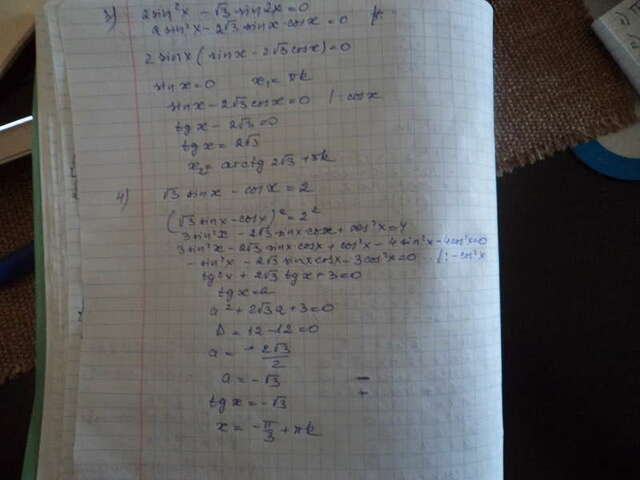 3) 2sin²x - √3 sin2x = 0
2sin²x - 2√3 sinx·cosx = 0
2sinx(sinx - 2√3 cosx) = 0
sinx = 0 x₁ = πk
sinx - 2√3 cosx = 0 /: cosx
tgx - 2√3 = 0
tgx = 2√3
x₂ = arctg 2√3 + πk
4) √3 sinx - cosx = 2
(√3 sinx - cosx)² = 2²
3sin²x - 2√3 sinx cosx + cos²x = 4
3sin²x - 2√3 sinx cosx + cos²x - 4sin²x - 4cos²x = 0
- sin²x - 2√3 sinx cosx - 3cos²x = 0 /: -cos²x
tg²x + 2√3 tgx + 3 = 0
tgx = a
a² + 2√3a + 3 = 0
D = 12 - 12 = 0
a = - 2√3/2
a = -√3
tgx = -√3
x = -π/3 + πk